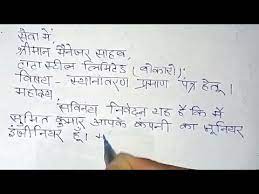 सेवा में,
श्रीमान मैनेजर साहब,
टाटा स्टील लिमिटेड (बोकारो)
विषय - स्थानांतरण प्रमाण पत्र हेतु।
महाशय,
सविनय निवेदन यह है कि मैं
सुमित कुमार आपके कंपनी का जूनियर
इंजीनियर हूँ।